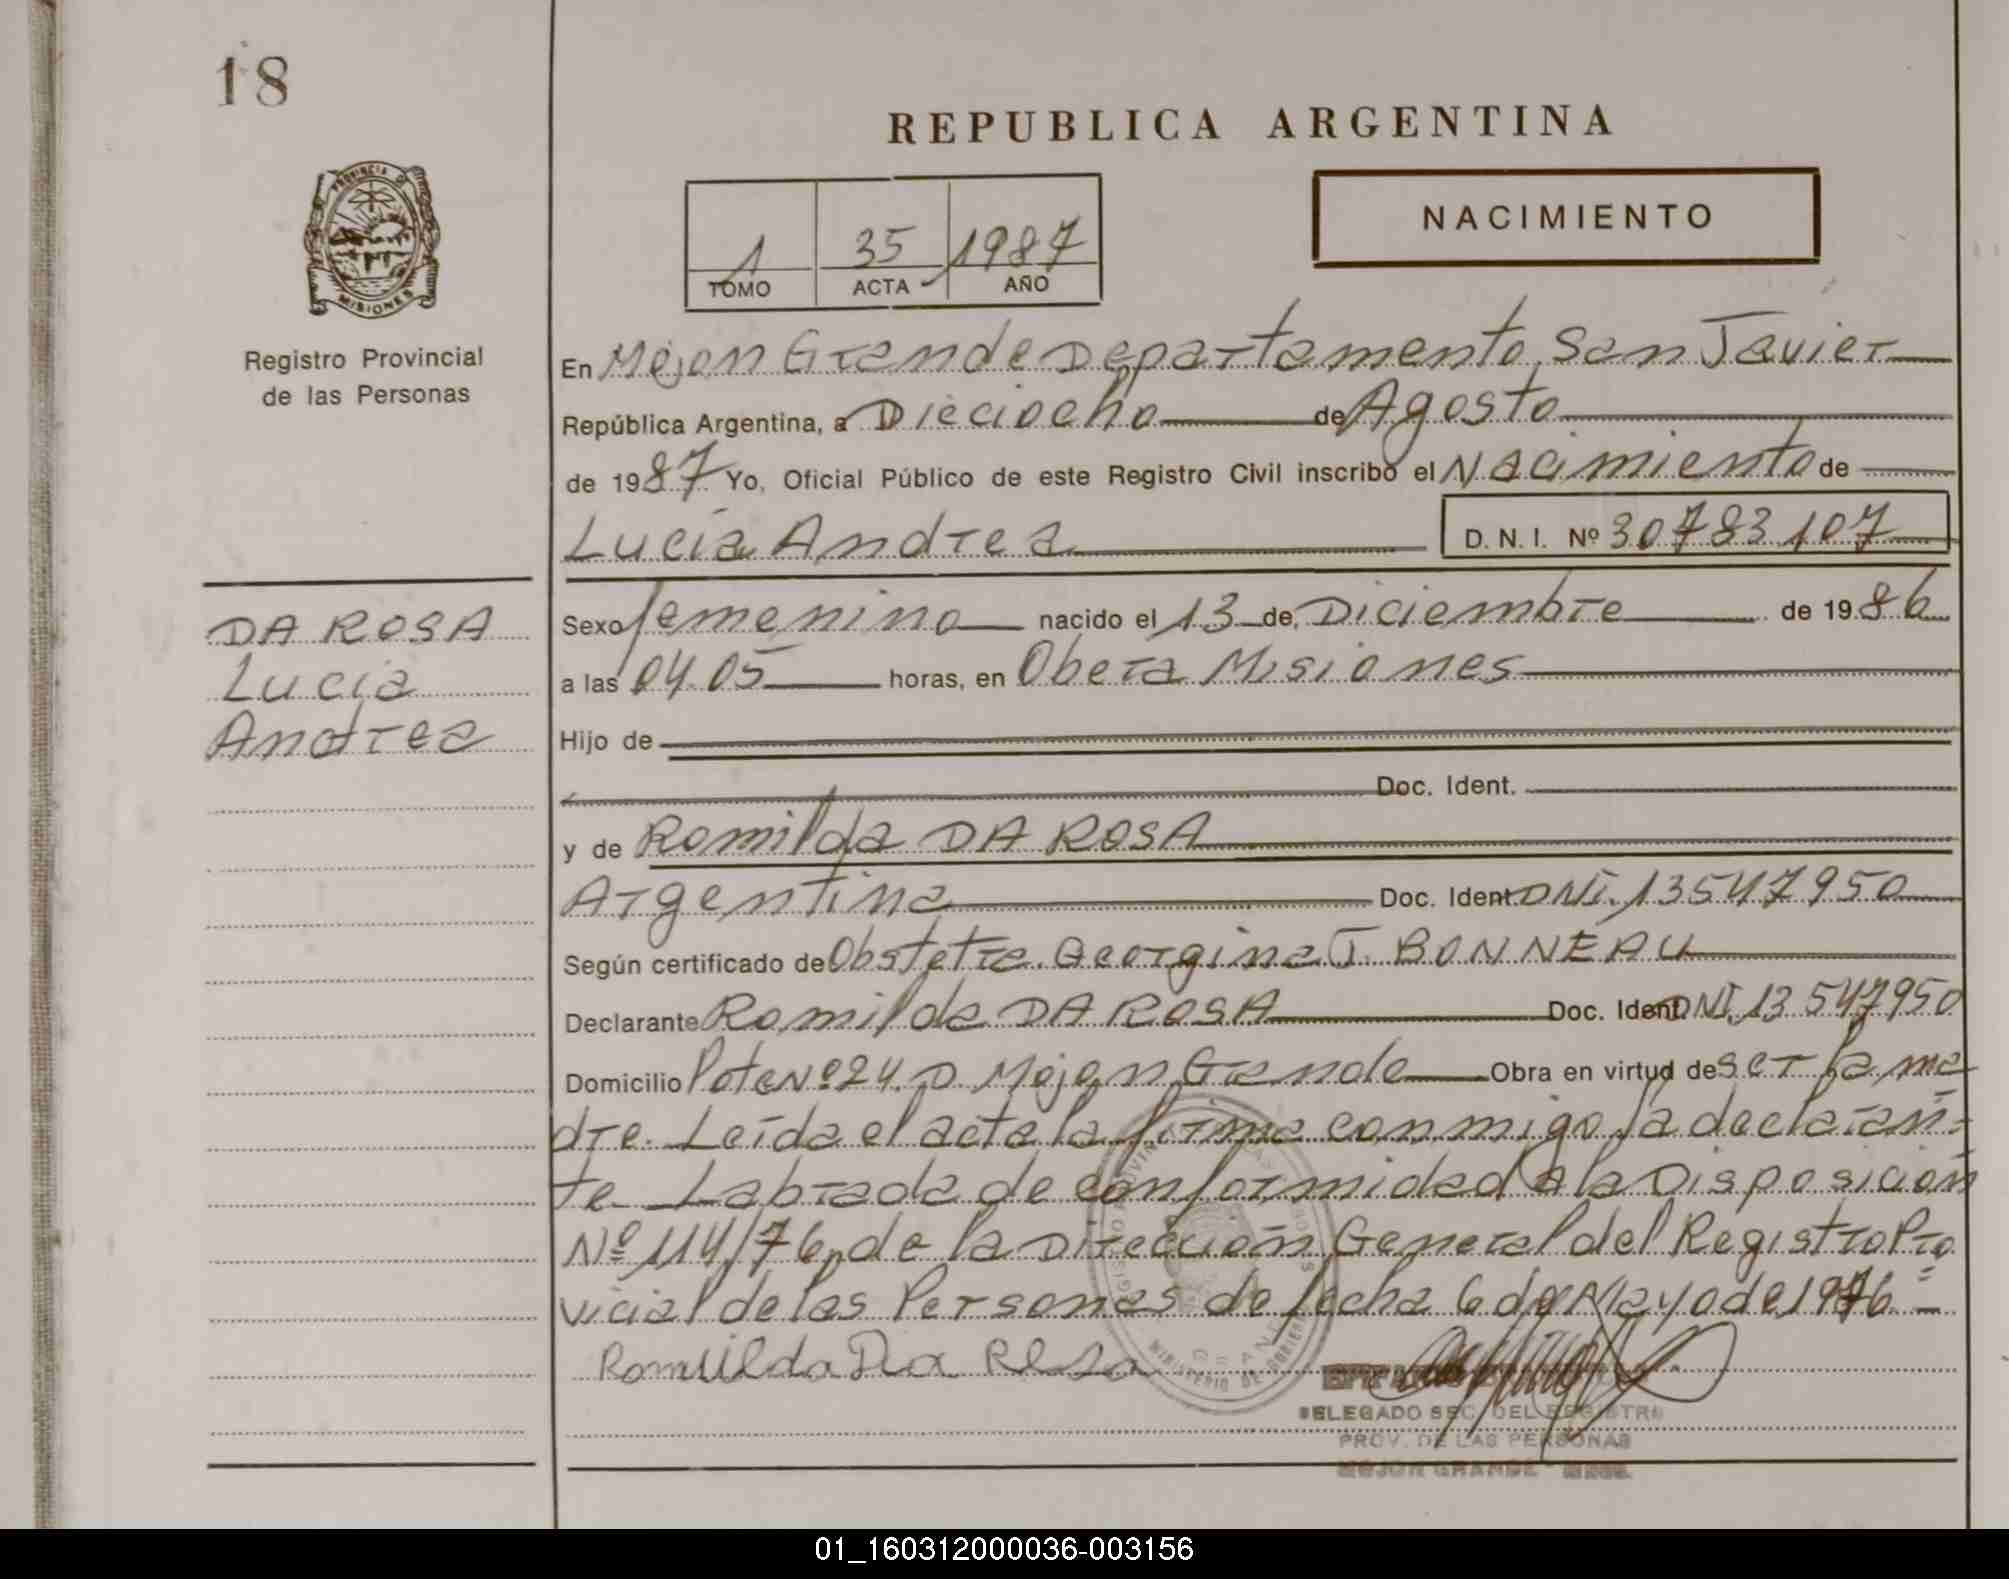 18
REPUBLICA ARGENTINA
PROVINCIA DE
MISIONES
Registro Provincial
de las Personas
NACIMIENTO
1 35 1987
TOMO ACTA AÑO
En Mojon Grande Departamento San Javier
República Argentina, a Dieciocho de Agosto
de 1987 Yo, Oficial Público de este Registro Civil inscribo el Nacimiento de
Lucia Andrea D. N. I. Nº 30783107
DA ROSA
Lucia
Andrea
Sexo femenino nacido el 13 de Diciembre de 1986
a las 04.05 horas, en Obera Misiones
Hijo de
Doc. Ident.
y de Romilda DA ROSA
Argentina Doc. Ident. DNI. 13547950
Según certificado de Obstetra. Georgina J. BONNEAU
Declarante Romilda DA ROSA Doc. Ident. DNI. 13547950
Domicilio Lote Nº 24. D. Mojon Grande Obra en virtud de ser la ma
dre. Leída el acta la firma conmigo la declaran=
te Labrada de conformidad a la Disposición
Nº 114/76, de la Dirección General del Registro Pro
vicial de las Personas de fecha 6 de Mayo de 1976 =
Romuilda Da Rosa
DELEGADO SEC. DEL REGISTRO
PROV. DE LAS PERSONAS
MOJON GRANDE
MINISTERIO DE GOBIERNO
01_160312000036-003156